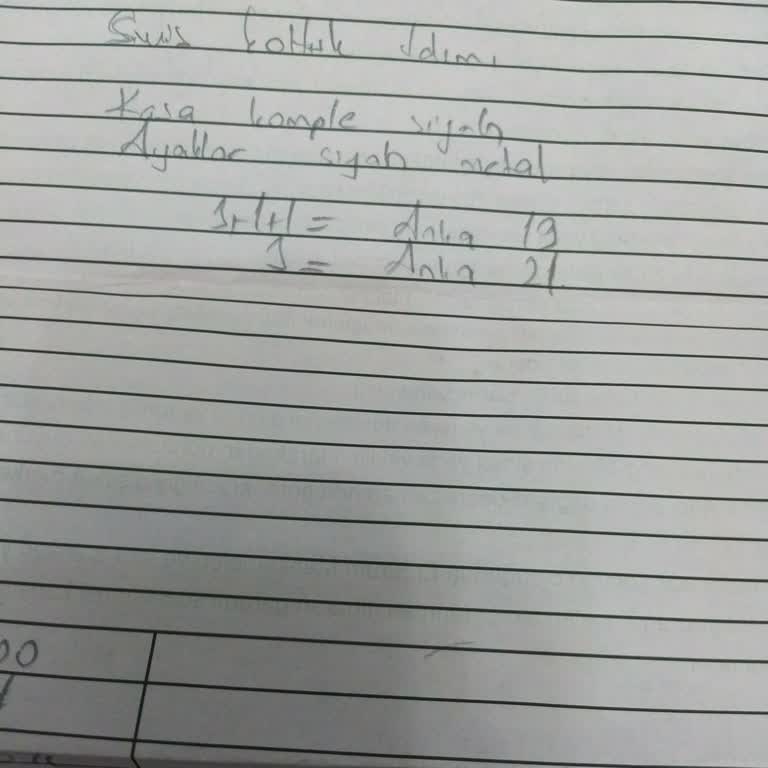 koltuk
Kasa komple siyah
Ayaklar siyah metal
3+1+1 = Anka 19
3 = Anka 21
00